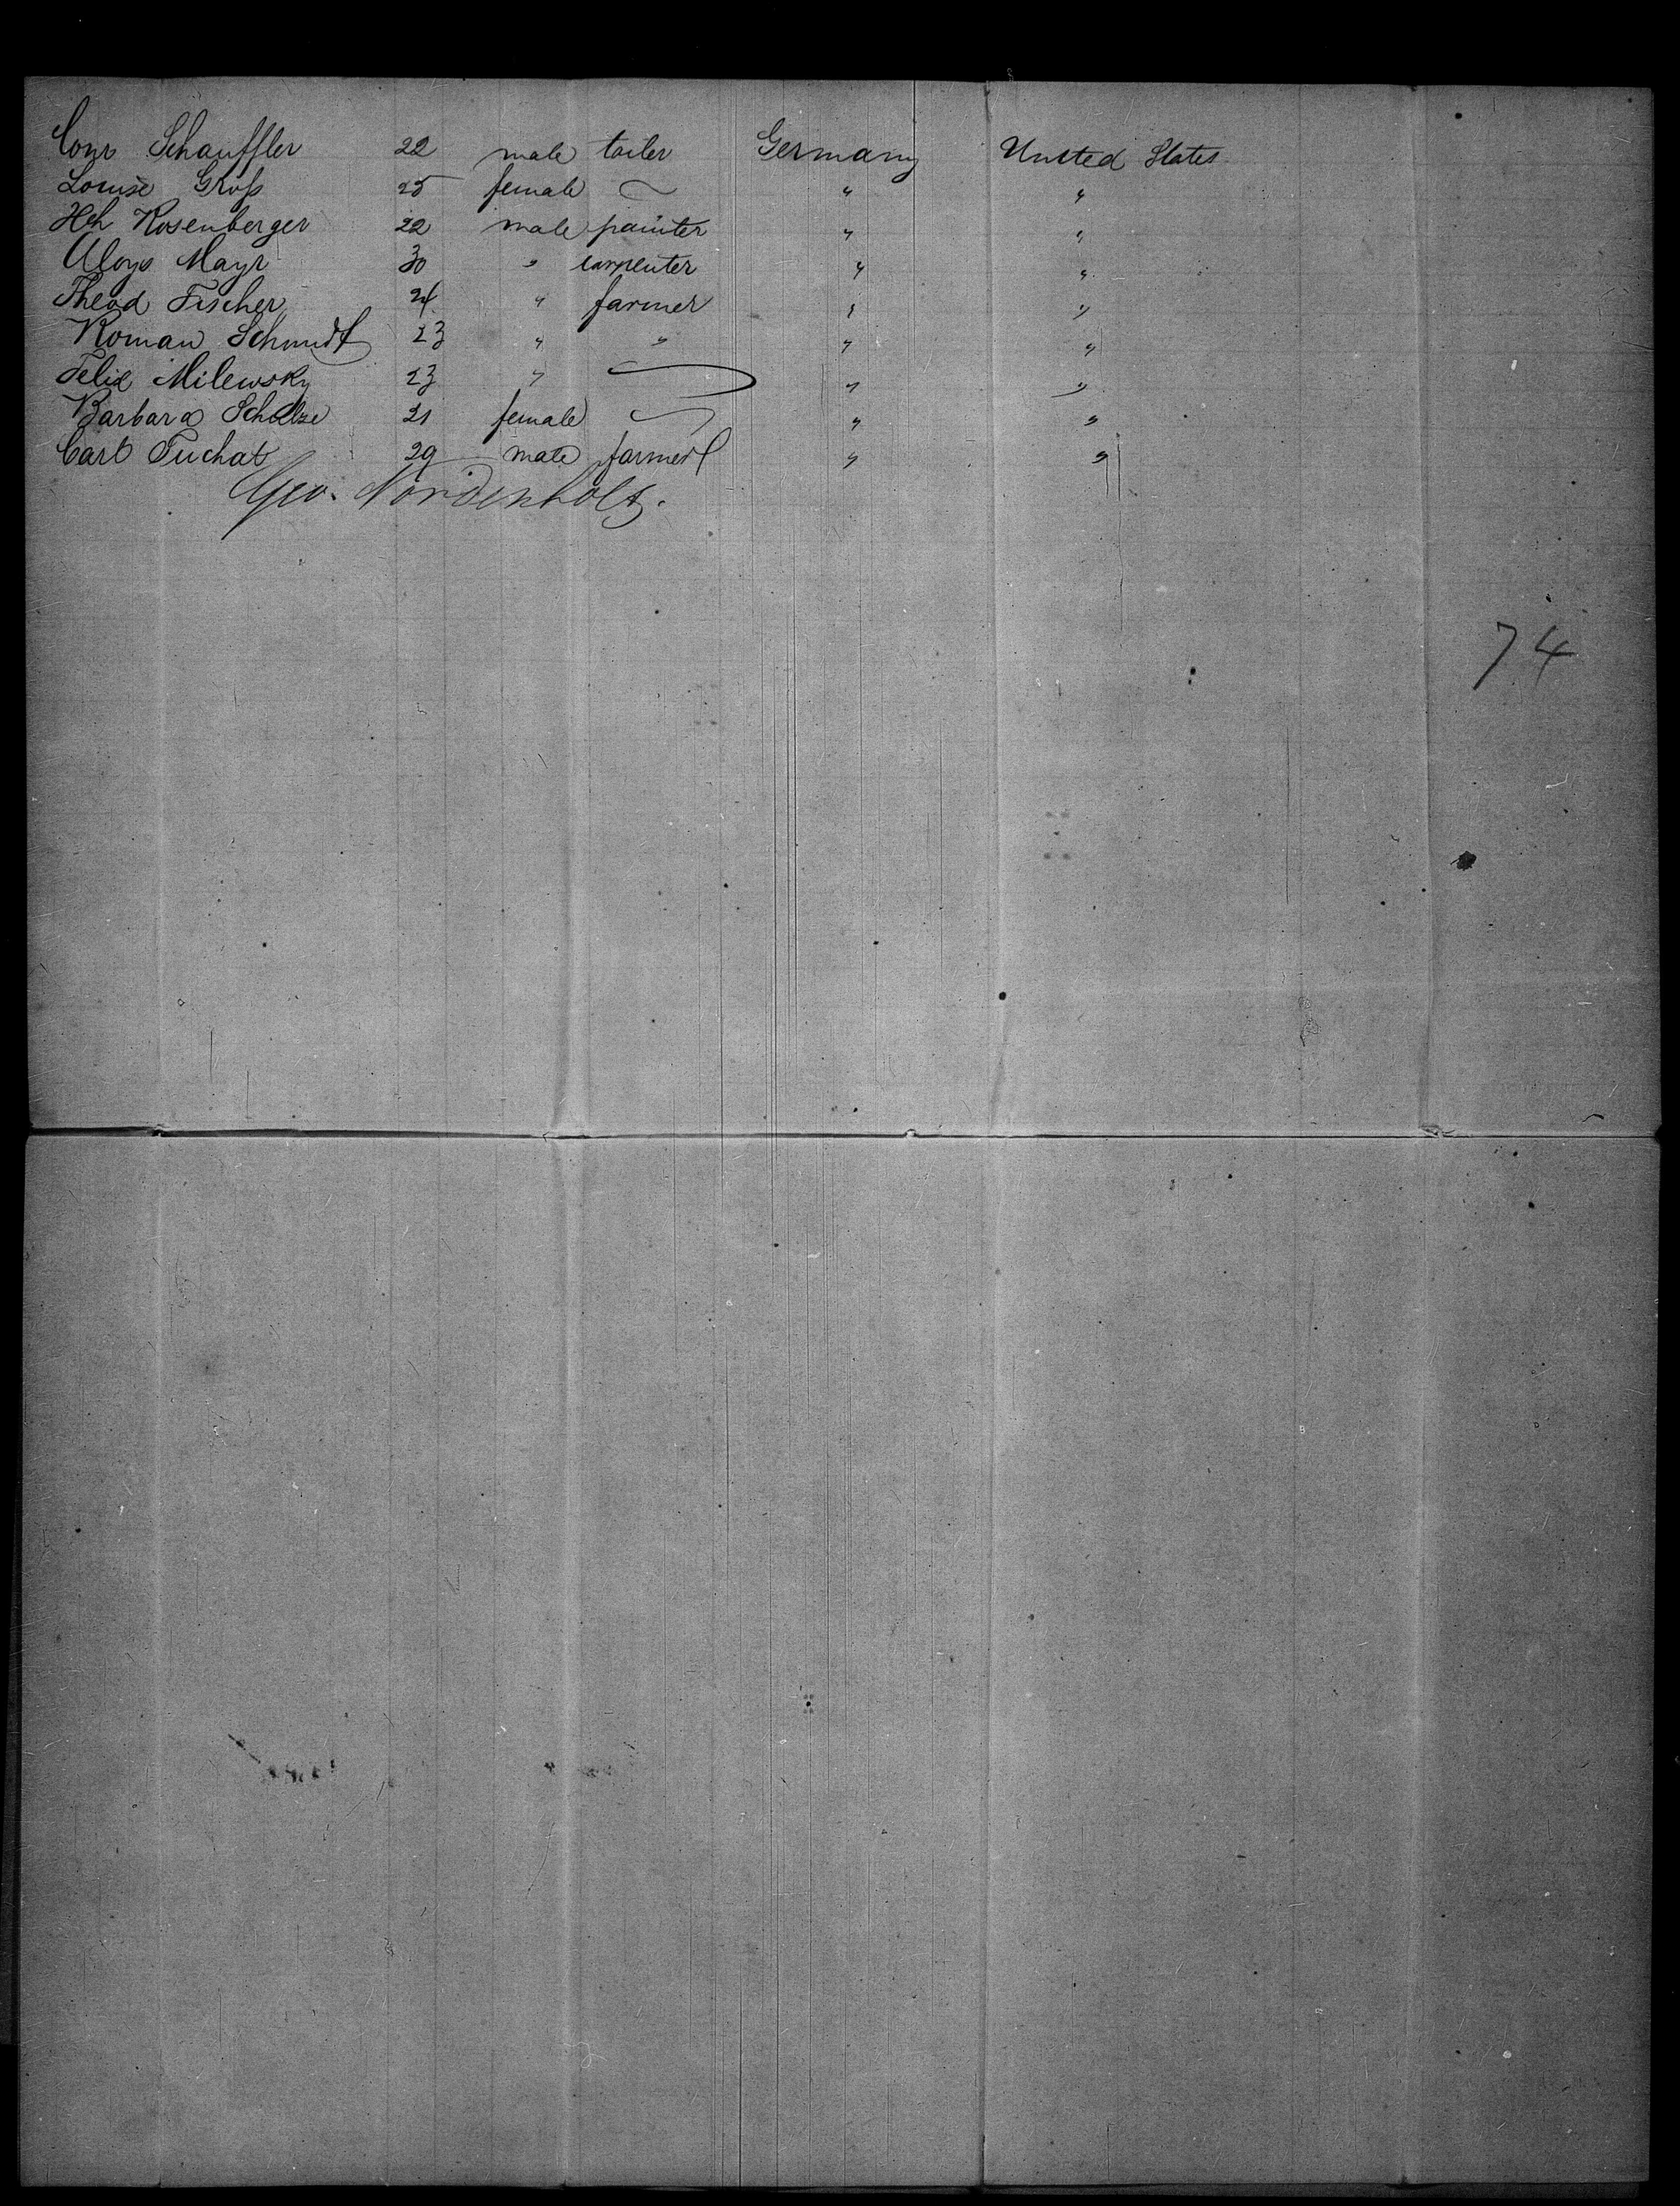 Conr Schauffler 22 male tailer Germany United States
Louise Groß 25 female " "
Hch Rosenberger 22 male painter " "
Aloys Mayr 30 " carpenter " "
Theod Fischer 24 " farmer " "
Roman Schmidt 23 " " " "
Felix Milewsky 23 " " "
Barbara Scholze 21 female " "
Carl Tuchat 29 male farmer " "
Geo. Nordenholt.
74